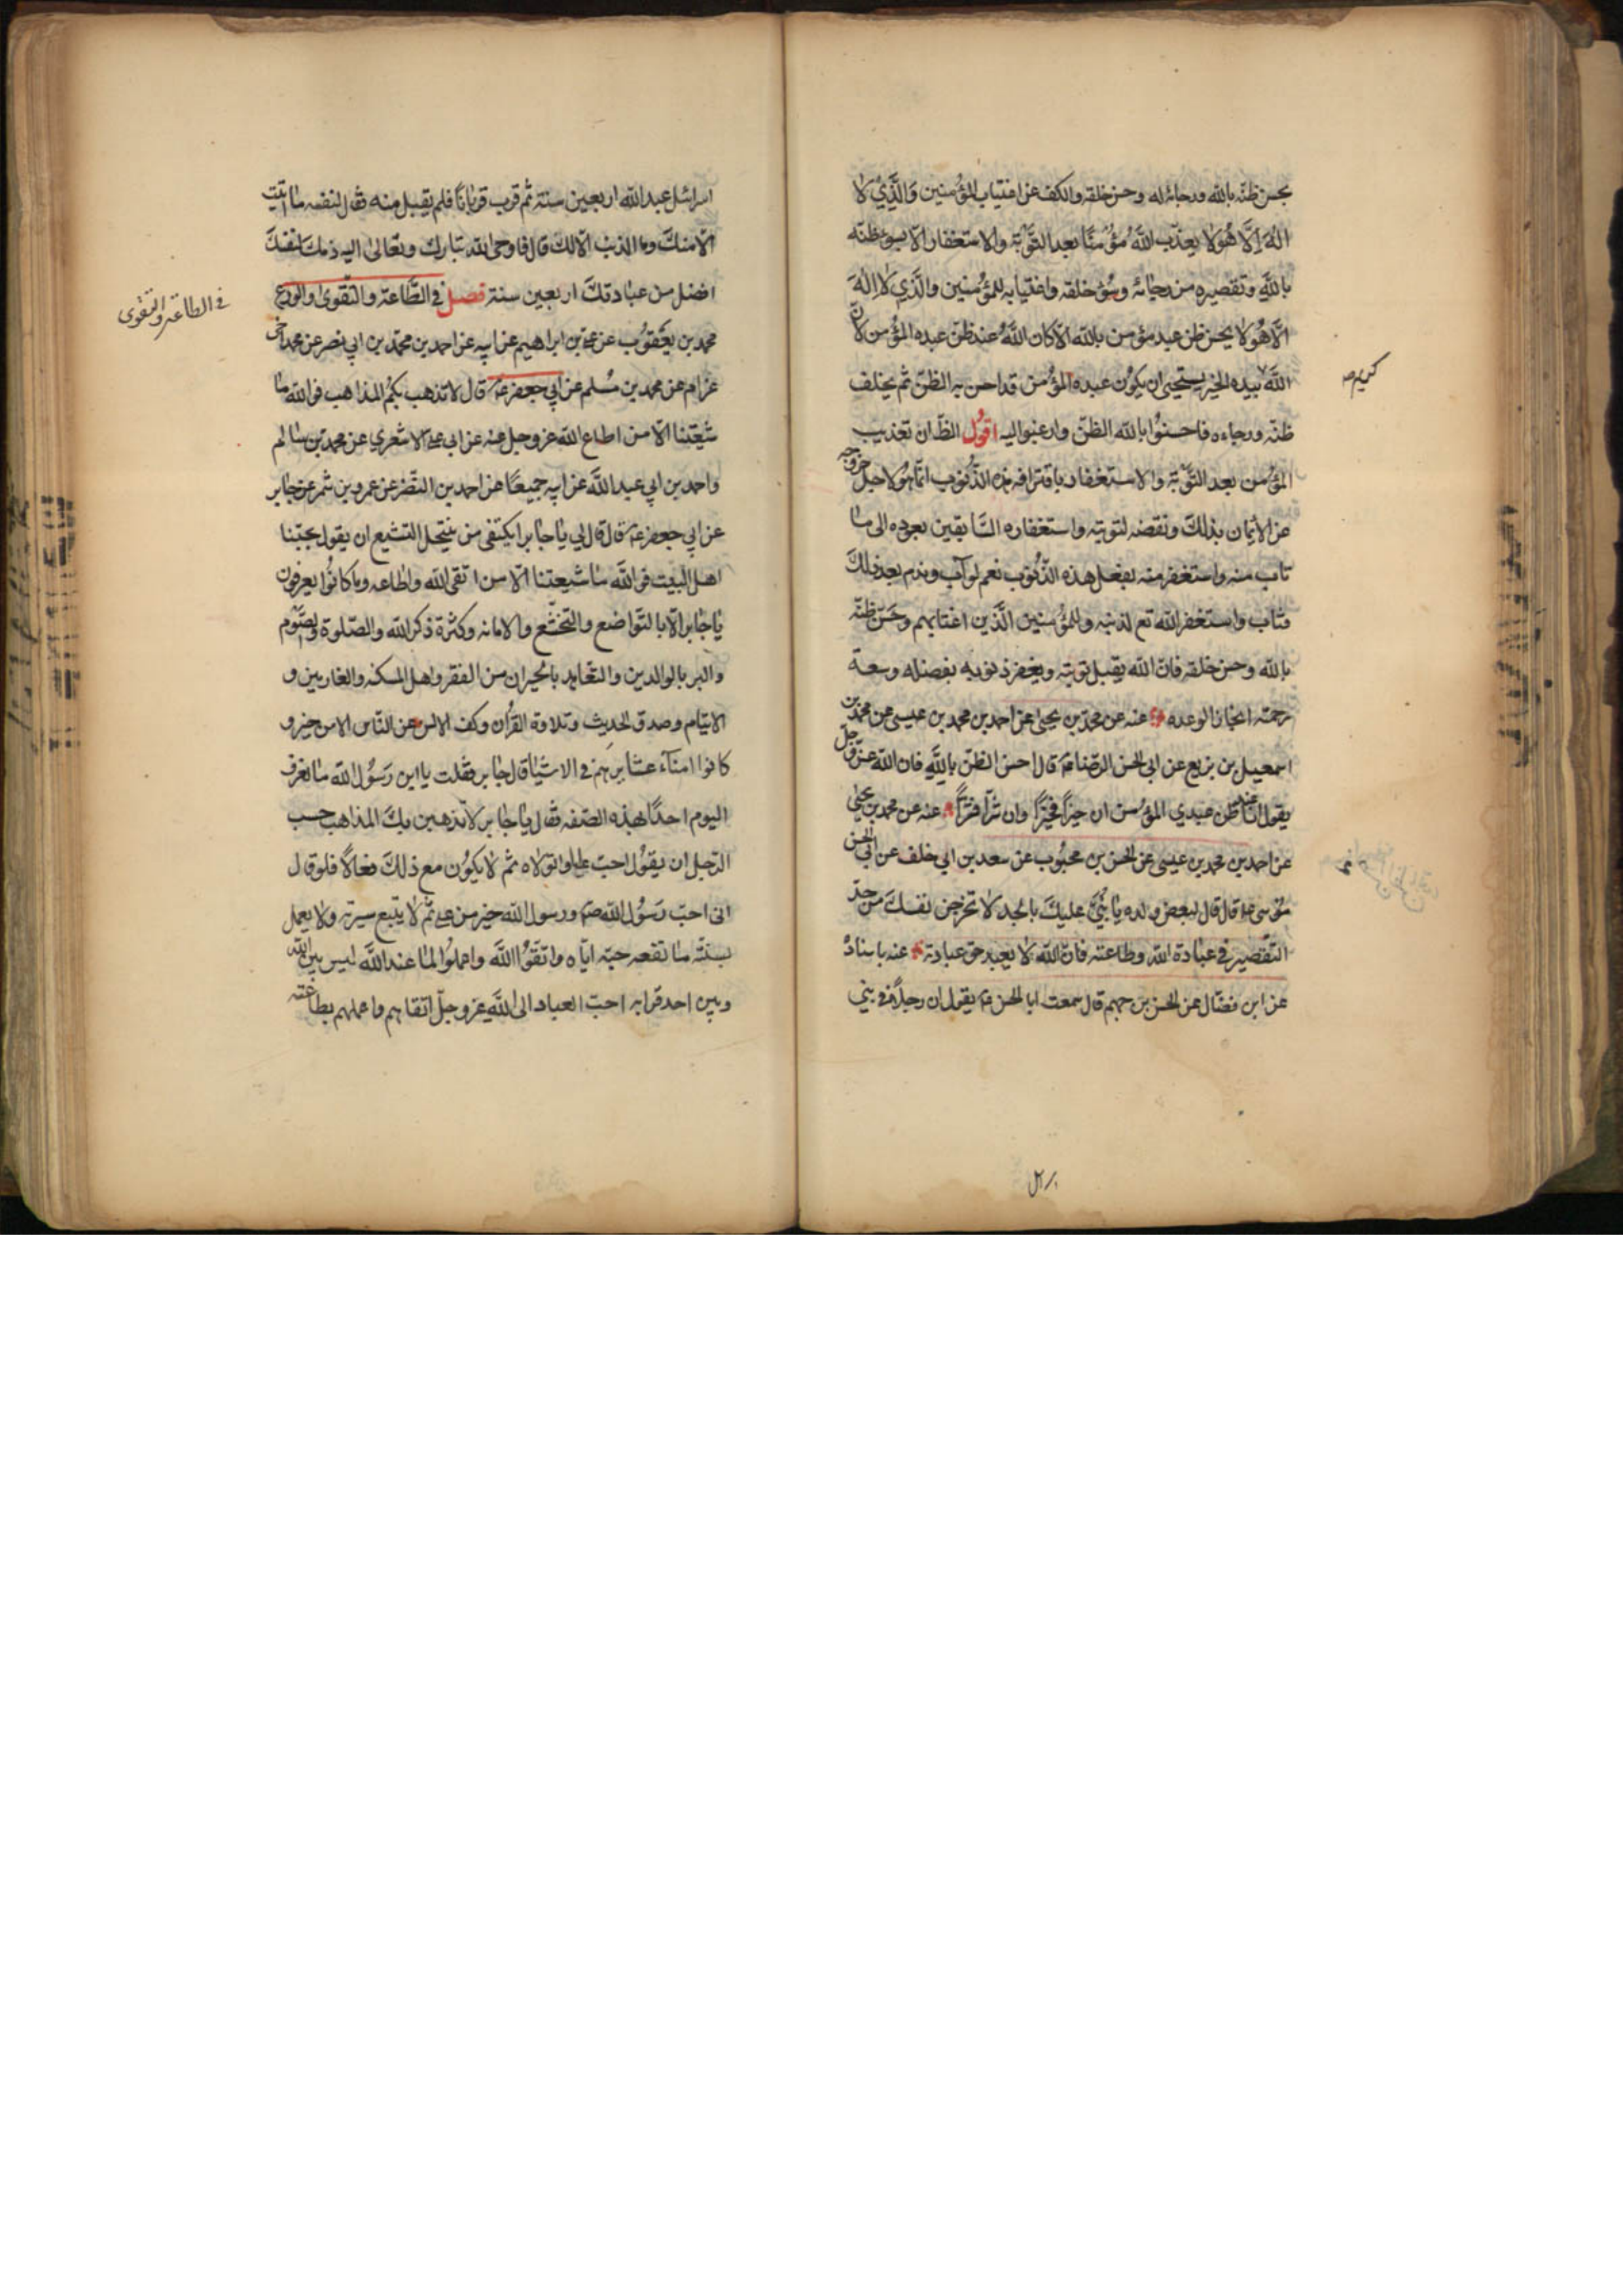 بحسن ظنّه بالله ورجائه له وحسن خلقه والكف عن اغتياب المؤمنين وَالَّذِيْ لا
الهَ اِلاّ هُوَ لا يعذّب اللهُ مؤمنًا بعد التَّوْبَة والاستغفار الا بسوء ظنّه
باللهِ وتقصيره من رجائه وسُوْء خلقه واغتيابه للمؤمنين والَّذِي لا الهَ
الاّ هُوَ لا يحسن ظن عبد مؤمن بالله الاّ كان اللهُ عند ظنّ عبده المؤمن لانّ
اللهَ بيده الخير يستحيى ان يكوُن عبده المؤمن قد احسن به الظنّ ثم يخلف
كريم صه
ظنّه ورجاءه فاحسنوُا بالله الظنّ وارغبوا اليه اقوُل الظّ ان تعذيب
المؤمن بعد التَّوْبَة والاستغفار باقترافه هذه الذّنُوب انّما هُوَ لاجل خروجه
عن الايمان بذلكَ ونقضه لتوبته واستغفاره السَّابقين بعوده الى ما
تاب منه واستغفر منه بفعل هذه الذّنُوب نعم لو آب وندم بعد ذلكَ
وتاب واستغفر الله تع لذنبه وللمؤمنين الَّذين اغتابهم وحَسّن ظنّه
بالله وحسن خلقه فانّ الله يقبل توبته ويغفر ذنوبه بفضله وسعة
رحمته انجازا لوعده عنه عن محمّد بن يحيى عن احمد بن محمد بن عيسى عن محمد بن
اسمعيل بن بزيع عن ابى الحسن الرّضا ع قال احسن الظنّ باللهِ فان الله عزّ وجلّ
يقول انا عند ظن عبدي المؤمن ان خيراً فخيراً وان شرّاً فشراً عنه عن محمد بن يحيى
عن احمد بن محمد بن عيسى عن الحسن بن محبُوب عن سعد بن ابي خلف عن ابي الحسن
مُوْسى ع قال قال لبعض ولده يا بُنيَّ عليكَ بالجد لا تخرجن نفسكَ من حدّ
التّقصير في عبادة الله وطاعته فانّ الله لا يعبد حق عبادته عنه باسناده
عن ابن فضّال عن الحسن بن جهم قال سمعت ابا الحسن ع يقول ان رجلاً في بني
اسرائيل عبد الله اربعين سنة ثم قرب قربانًا فلم يقبل منه فقال لنفسه ما اتيت
الاّ منكَ وما الذنب الاّ لك قال فاوحى الله تبارك وتعالى اليه ذمك لنفسكَ
افضل من عبادتكَ اربعين سنة فصل في الطَّاعة والتّقوى والورع
في الطاعة والتقوى
محمد بن يعقوُب عن علي بن ابراهيم عن ابيه عن احمد بن محمّد بن ابي نصر عن محمد اخى
عرام عن محمد بن مُسلم عن ابي جعفر ع قال لا تذهب بكُمْ المذاهب فوالله ما
شيعتنا الا من اطاع الله عز وجل عنه عن ابي علي الاشعري عن محمد بن سالم
واحمد بن ابي عبد الله عن ابيه جميعًا عن احمد بن النضر عن عمرو بن شمر عن جابر
عن ابي جعفر ع قال قال لي يا جابر ايكتفى من ينتحل التشيع ان يقول بحبّنا
اهل البيت فو اللهَ ما شيعتنا الاّ من اتقى الله واطاعه وما كانوُا يعرفون
يا جابر الاّ بالتواضع والتخشّع والامانه وكثرة ذكر الله والصّلوة والصَّوْم
والبر بالوالدين والتعاهد بالجيران من الفقر واهل المسكنه والغارمين و
الايتام وصدق الحديث وتلاوة القرُان وكف الالسن عن النّاس الا من خير و
كانوا امنآء عشايرهم في الاشيا قال جابر فقلت يا ابن رَسُول الله ما نعرف
اليوم احدًا بهذه الصّفه فقال يا جابر لا تذهبن بكَ المذاهب حسب
الرّجل ان يقوُل احب عليا واتولاه ثم لا يكوُن مع ذلكَ فعالاً فلو قال
انى احبّ رَسُول الله ص ورسول الله خير من علي ثمّ لا يتّبع سيرته ولا يعمل
بسنتّه ما نفعه حبّه ايّاه واتقوُا اللهَ واعملوُا لما عند اللهَ ليس بين الله
وبين احد قرابه احبّ العباد الى اللهِ عز وجلّ اتقاهم واعملهم بطاعته